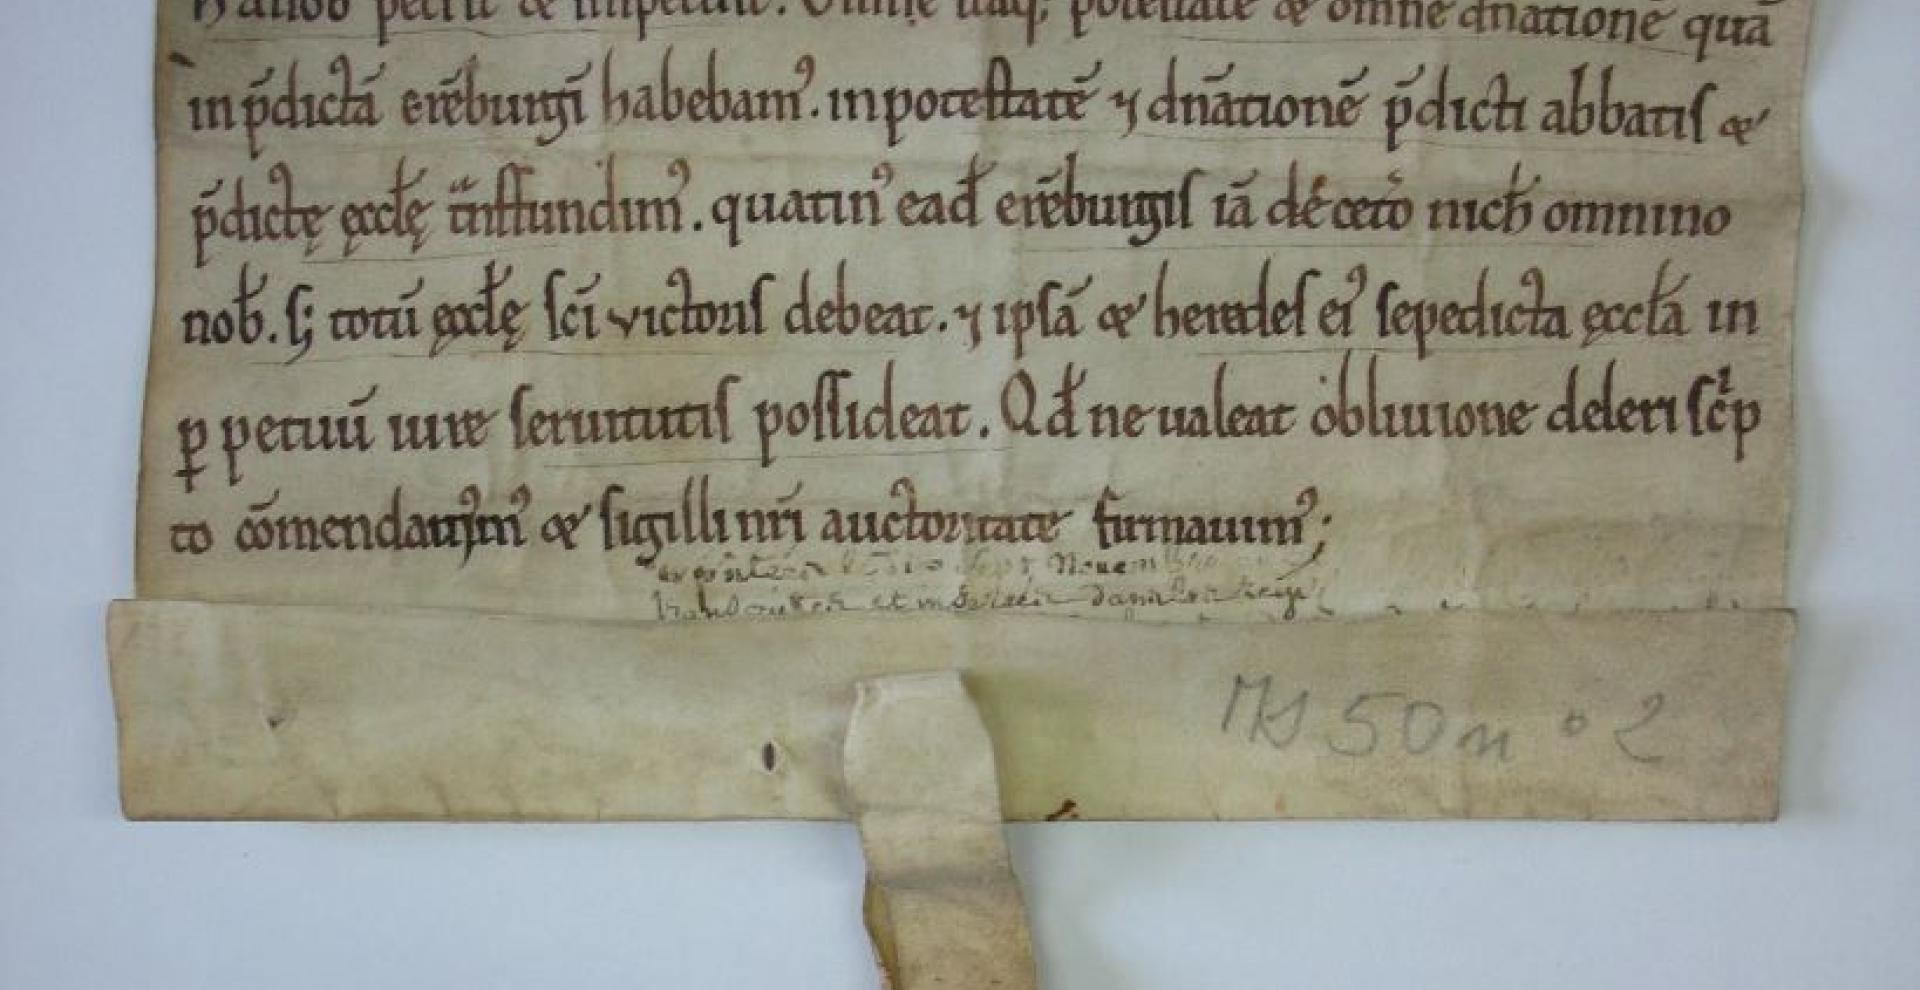 petiit & impetrauit. Omnē itaq; potestatē & omnē dn̄ationē quā
in p̄dictā erēburgī habebam᷒. in potestatē ⁊ dn̄ationē p̄dicti abbatis &
p̄dictę ęccłę tͣnsfundim᷒. quatin᷒ ead̄ erēburgis iā de cet̾o nichł omnino
nob̄. s; totū ęccłę sc̄i victoris debeat. ⁊ ipsā & heredes ei᷒ sepedicta ęccła in
ꝑ petuū iure seruitutis possideat. Qd̄ ne ualeat obliuione deleri scͥp
to cōmendauim᷒ & sigilli nr̄i auctoritate firmauim᷒;
Nouembre
et
MS 50 n° 2